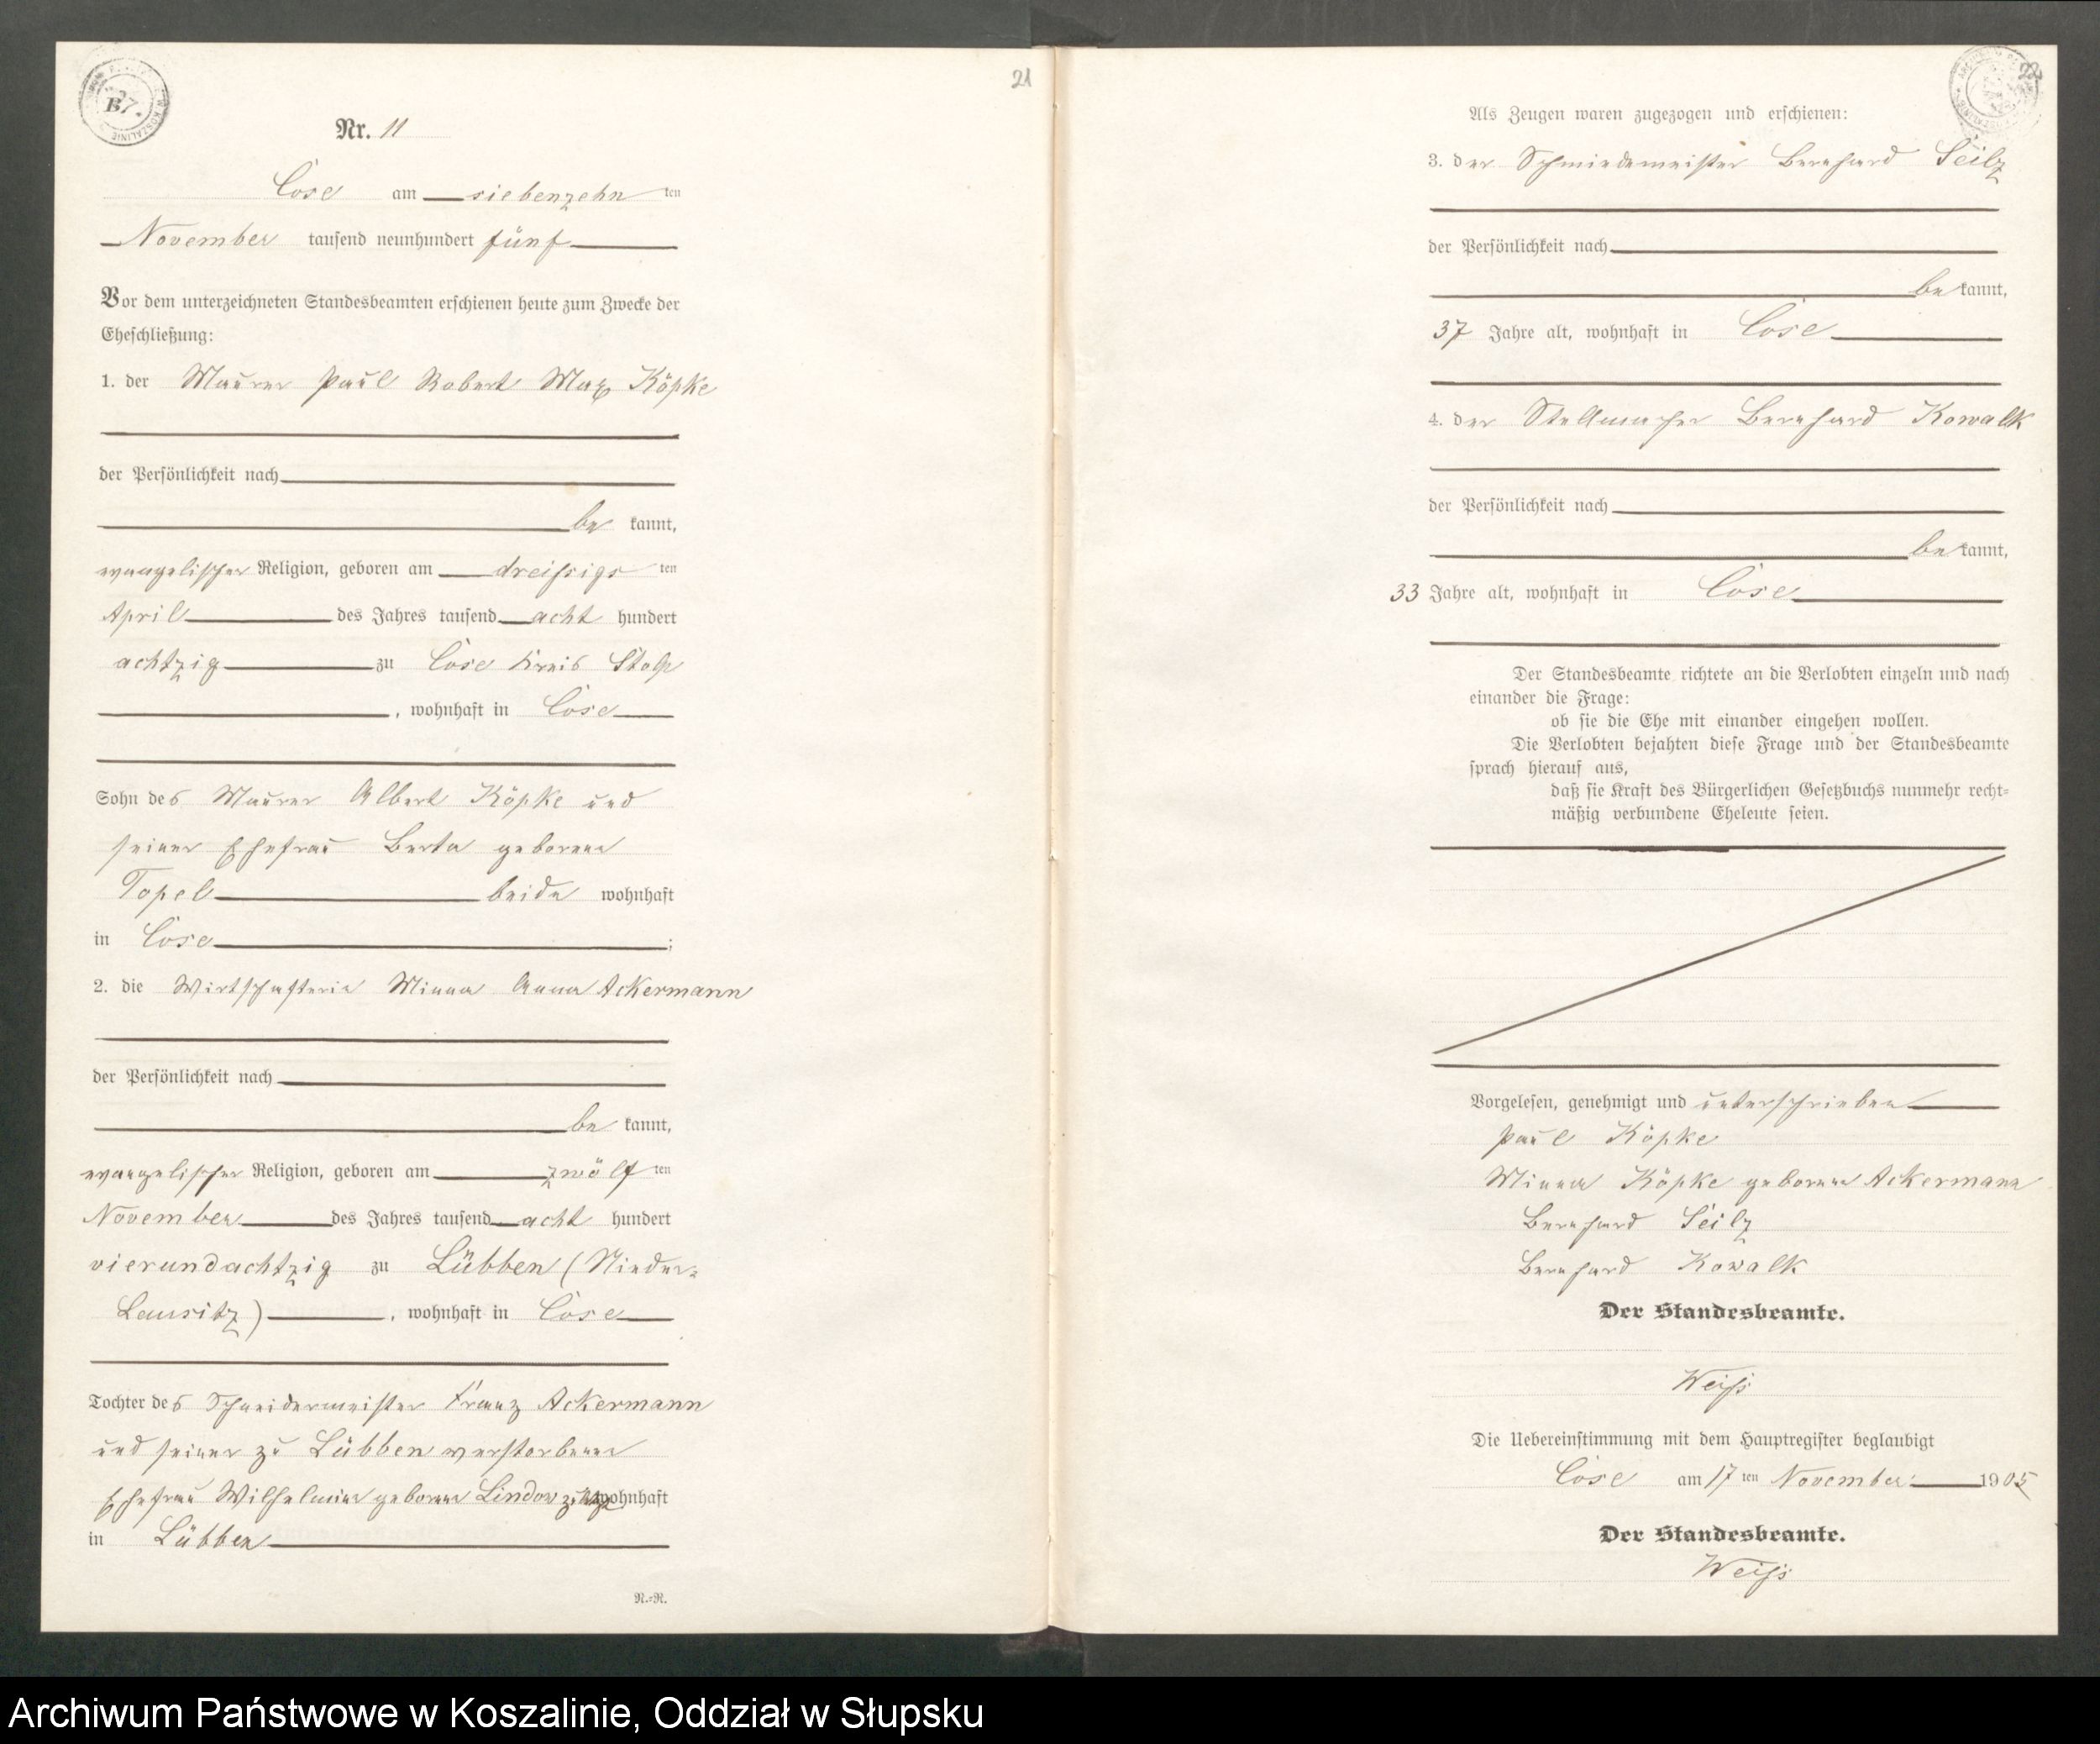 B 7.
21
Nr. 11
Lose am siebenzehn ten
November tausend neunhundert fünf
Vor dem unterzeichneten Standesbeamten erschienen heute zum Zwecke der
Eheschließung:
1. der Maurer Paul Robert Max Köpke
der Persönlichkeit nach
be kannt,
evangelischer Religion, geboren am dreißigs ten
April des Jahres tausend acht hundert
achtzig zu Lose Kreis Stolp
, wohnhaft in Lose
Sohn des Maurer Albert Köpke und
seiner Ehefrau Berta geborene
Topel beide wohnhaft
in Lose ;
2. die Wirtschafterin Minna Anna Ackermann
der Persönlichkeit nach
be kannt,
evangelischer Religion, geboren am zwölf ten
November des Jahres tausend acht hundert
vierundachtzig zu Lübben (Nieder-
Lausitz) , wohnhaft in Lose
Tochter des Schneidermeister Franz Ackermann
und seiner zu Lübben verstorbenen
Ehefrau Wilhelmine geborene Lindow wohnhaft
in Lübben
N.=N.
Als Zeugen waren zugezogen und erschienen:
3. der Schmiedemeister Bernhard Seilz
der Persönlichkeit nach
be kannt,
37 Jahre alt, wohnhaft in Lose
4. der Stellmacher Bernhard Kowalk
der Persönlichkeit nach
be kannt,
33 Jahre alt, wohnhaft in Lose
Der Standesbeamte richtete an die Verlobten einzeln und nach
einander die Frage:
ob sie die Ehe mit einander eingehen wollen.
Die Verlobten bejahten diese Frage und der Standesbeamte
sprach hierauf aus,
daß sie Kraft des Bürgerlichen Gesetzbuchs nunmehr recht=
mäßig verbundene Eheleute seien.
Vorgelesen, genehmigt und unterschrieben
Paul Köpke
Minna Köpke geborene Ackermann
Bernhard Seilz
Bernhard Kowalk
Der Standesbeamte.
Weiß
Die Uebereinstimmung mit dem Hauptregister beglaubigt
Lose am 17 ten November 1905
Der Standesbeamte.
Weiß
Archiwum Państwowe w Koszalinie, Oddział w Słupsku